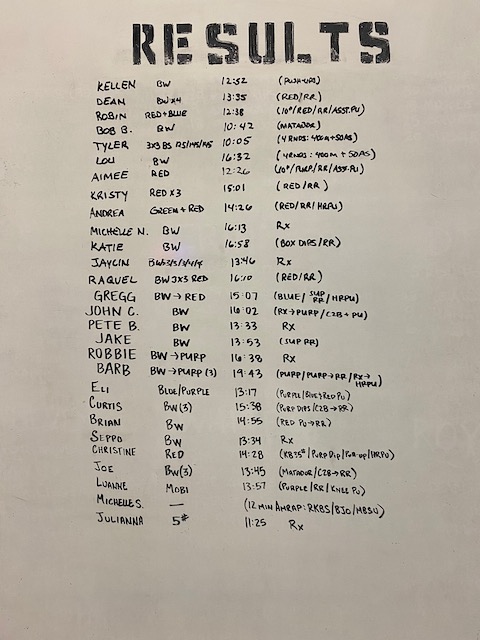 RESULTS
KELLEN BW 12:52 (PUSH-UPS)
DEAN BW x4 13:35 (RED/RR)
ROBIN RED + BLUE 12:38 (10"/RED/RR/ASST.PU)
BOB B. BW 10:42 (MATADOR)
TYLER 3x3 BS 10:05 (4 RNDS: 400M + 50AS)
LOU BW 16:32 (4 RNDS: 400M + 50AS)
AIMEE RED 12:26 (10"/PURP/RR/ASST.PU)
KRISTY RED x3 15:01 (RED/RR)
ANDREA GREEN + RED 14:26 (RED/RR/HRPU)
MICHELLE N. BW 16:13 Rx
KATIE BW 16:58 (BOX DIPS/RR)
JAYLIN 13:46 Rx
RAQUEL BW 3x3 RED 16:10 (RED/RR)
GREGG BW → RED 15:07 (BLUE/ SUP RR /HRPU)
JOHN C. BW 16:02 (RX → PURP/C2B + PU)
PETE B. BW 13:33 Rx
JAKE BW 13:53 (SUP RR)
ROBBIE BW → PURP 16:38 Rx
BARB BW → PURP (3) 19:43 (PURP/PURP → RR/RX → HRPU)
ELI BLUE/PURPLE 13:17 (PURPLE/BLUE+RED PU)
CURTIS BW (3) 15:38 (PURP DIPS/C2B → RR)
BRIAN BW 14:55 (RED PU → RR)
SEPPO BW 13:34 Rx
CHRISTINE RED 14:28 (KB35#/PURP DIP/PUR-UP/HRPU)
JOE BW (3) 13:45 (MATADOR/C2B → RR)
LUANNE MOBI 13:57 (PURPLE/RR/KNEE PU)
MICHELLE S. — (12 MIN AMRAP: RKBS/BJO/MBSU)
JULIANNA 5# 11:25 Rx